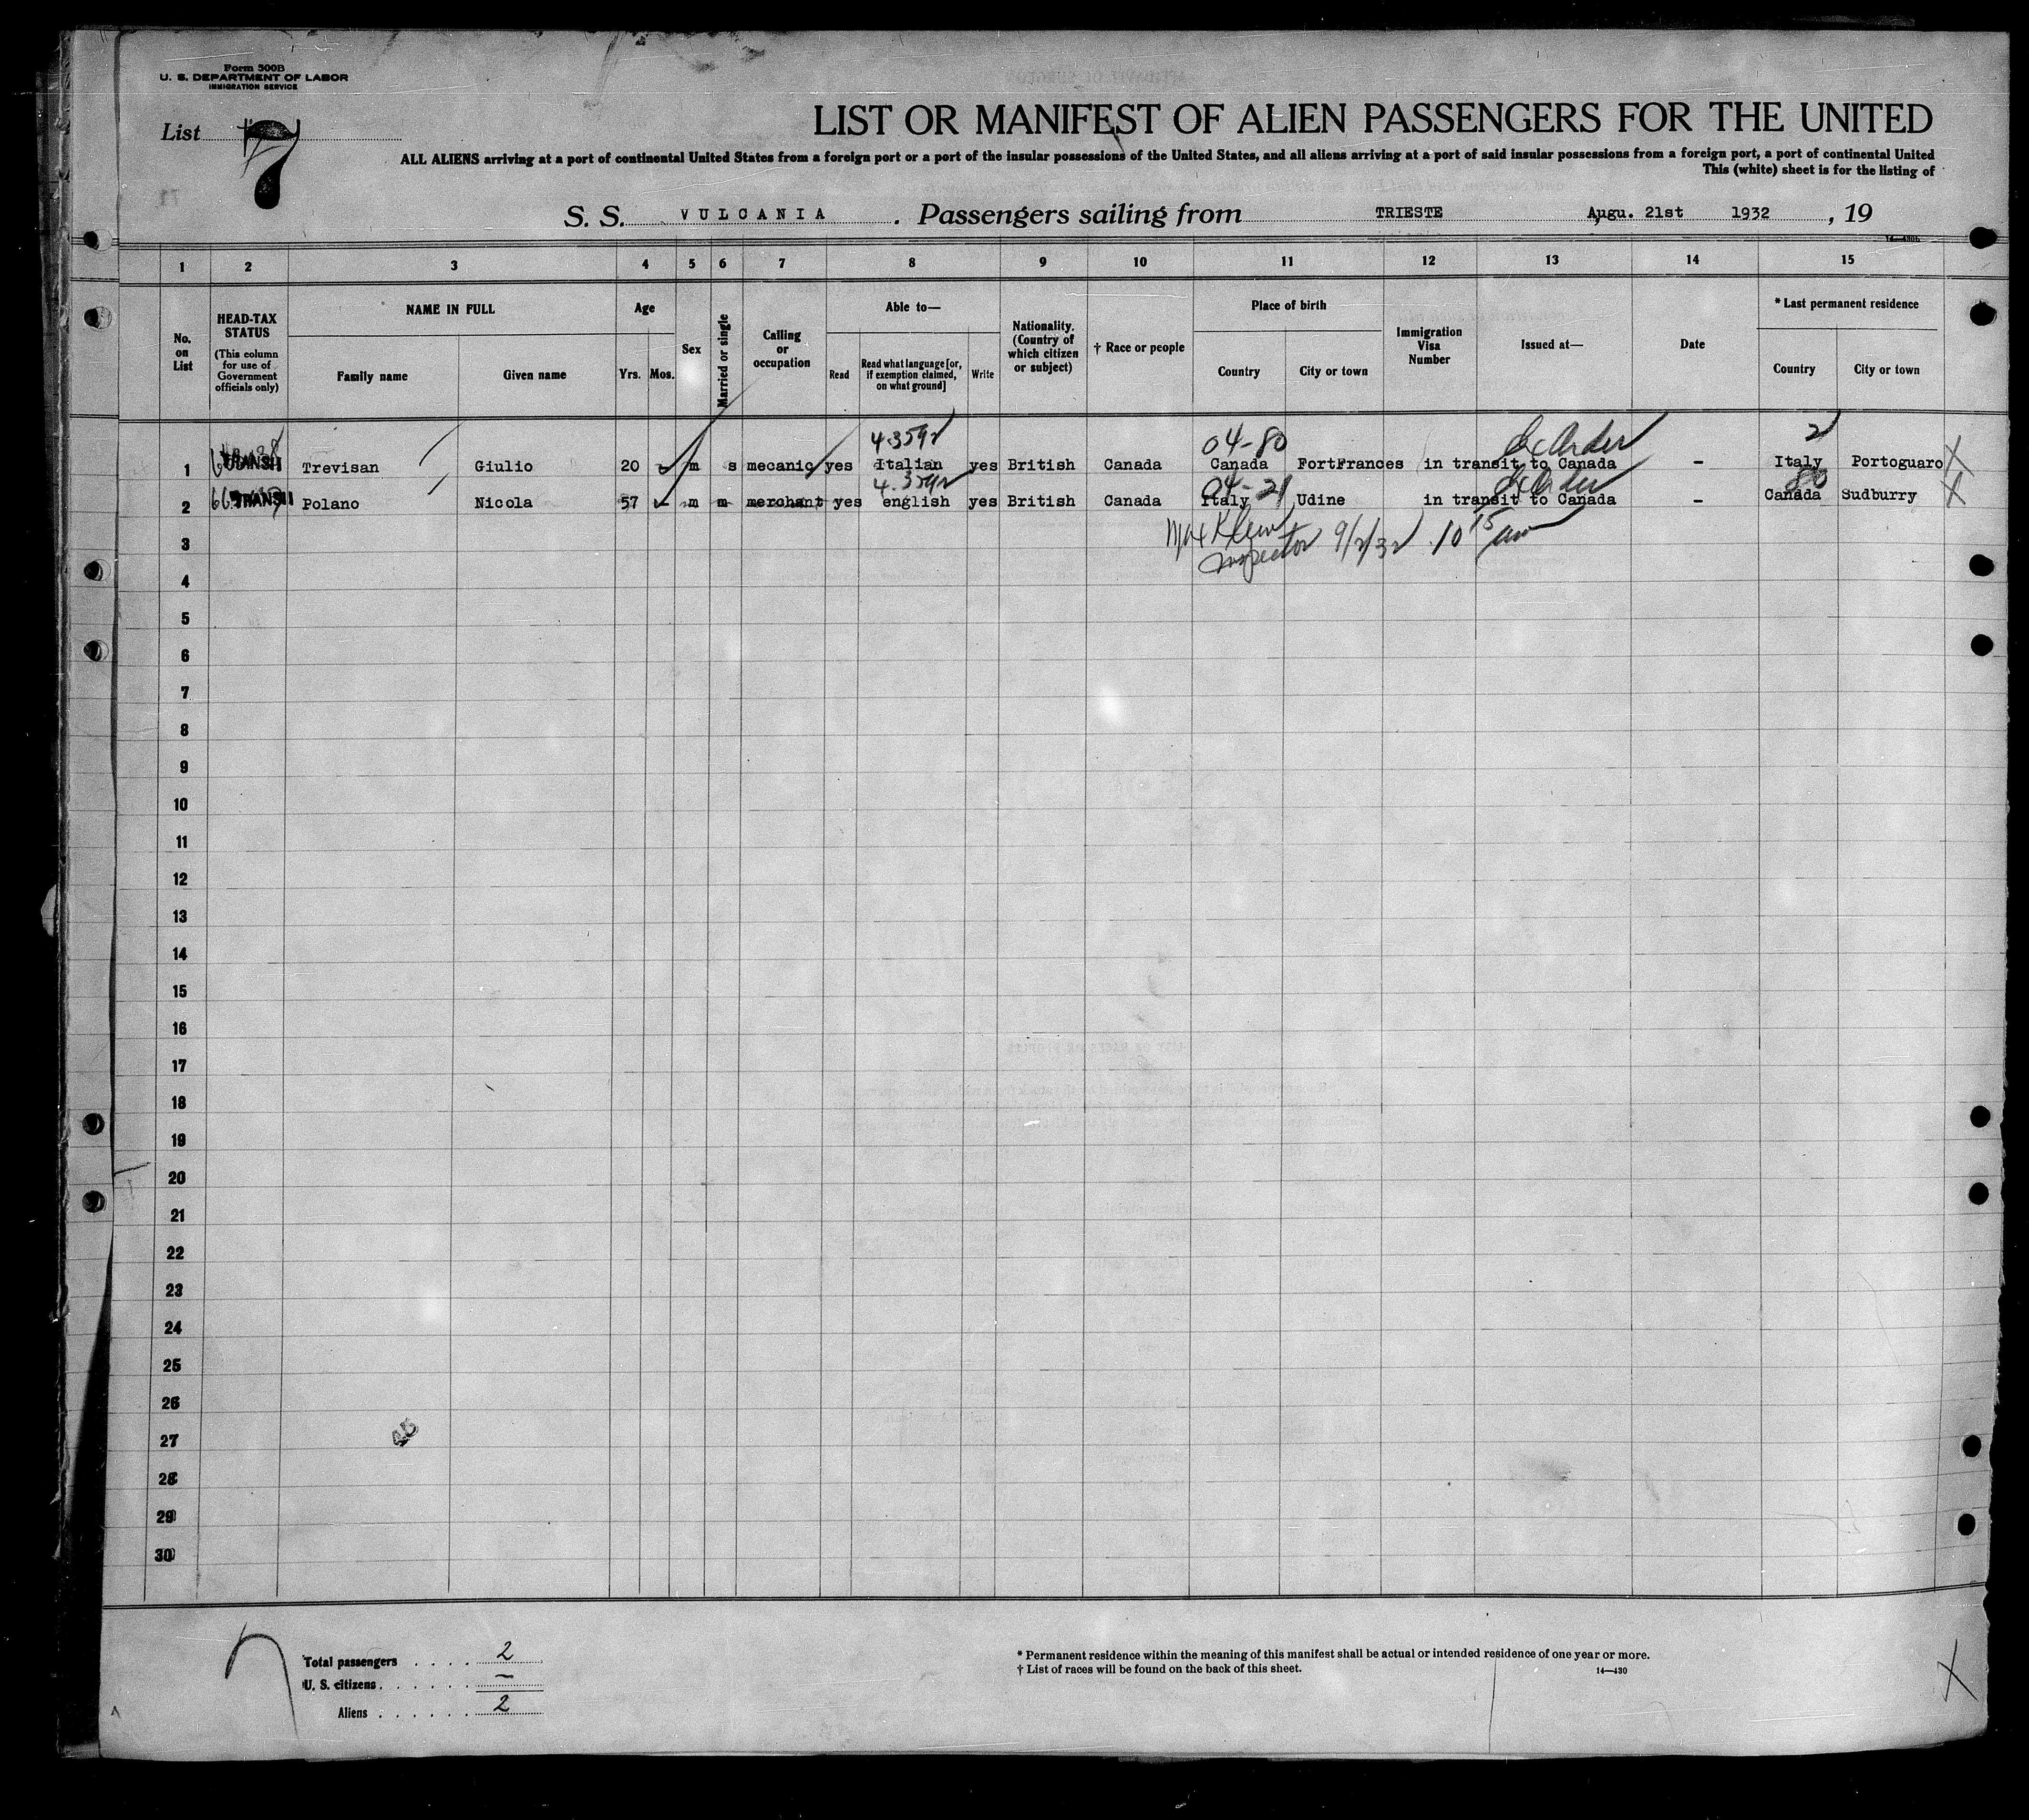 Form 500B
U. S. DEPARTMENT OF LABOR
IMMIGRATION SERVICE
List 7
LIST OR MANIFEST OF ALIEN PASSENGERS FOR THE UNITED
ALL ALIENS arriving at a port of continental United States from a foreign port or a port of the insular possessions of the United States, and all aliens arriving at a port of said insular possessions from a foreign port, a port of continental United
This (white) sheet is for the listing of
S. S. VULCANIA. Passengers sailing from TRIESTE Augu. 21st 1932, 19
14—430b
1 2 3 4 5 6 7 8 9 10 11 12 13 14 15
No. on List
HEAD-TAX STATUS
(This column for use of Government officials only)
NAME IN FULL
Family name
Given name
Age
Yrs.
Mos.
Sex
Married or single
Calling or occupation
Able to—
Read
Read what language [or, if exemption claimed, on what ground]
Write
Nationality. (Country of which citizen or subject)
† Race or people
Place of birth
Country
City or town
Immigration Visa Number
Issued at—
Date
* Last permanent residence
Country
City or town
04-80
2
1 TRANSIT Trevisan Giulio 20 m s mecanic yes Italian yes British Canada Canada FortFrances in transit to Canada - Italy Portoguaro
04-21
80
2 TRANSIT Polano Nicola 57 m m merchant yes english yes British Canada Italy Udine in transit to Canada - Canada Sudburry
Max Klein
3
Inspector 9/2/32 10 15 am
4
5
6
7
8
9
10
11
12
13
14
15
16
17
18
19
20
21
22
23
24
25
26
27
28
29
30
Total passengers . . . . 2
U. S. citizens . . . . . . —
Aliens . . . . . . 2
* Permanent residence within the meaning of this manifest shall be actual or intended residence of one year or more.
† List of races will be found on the back of this sheet.
14—430